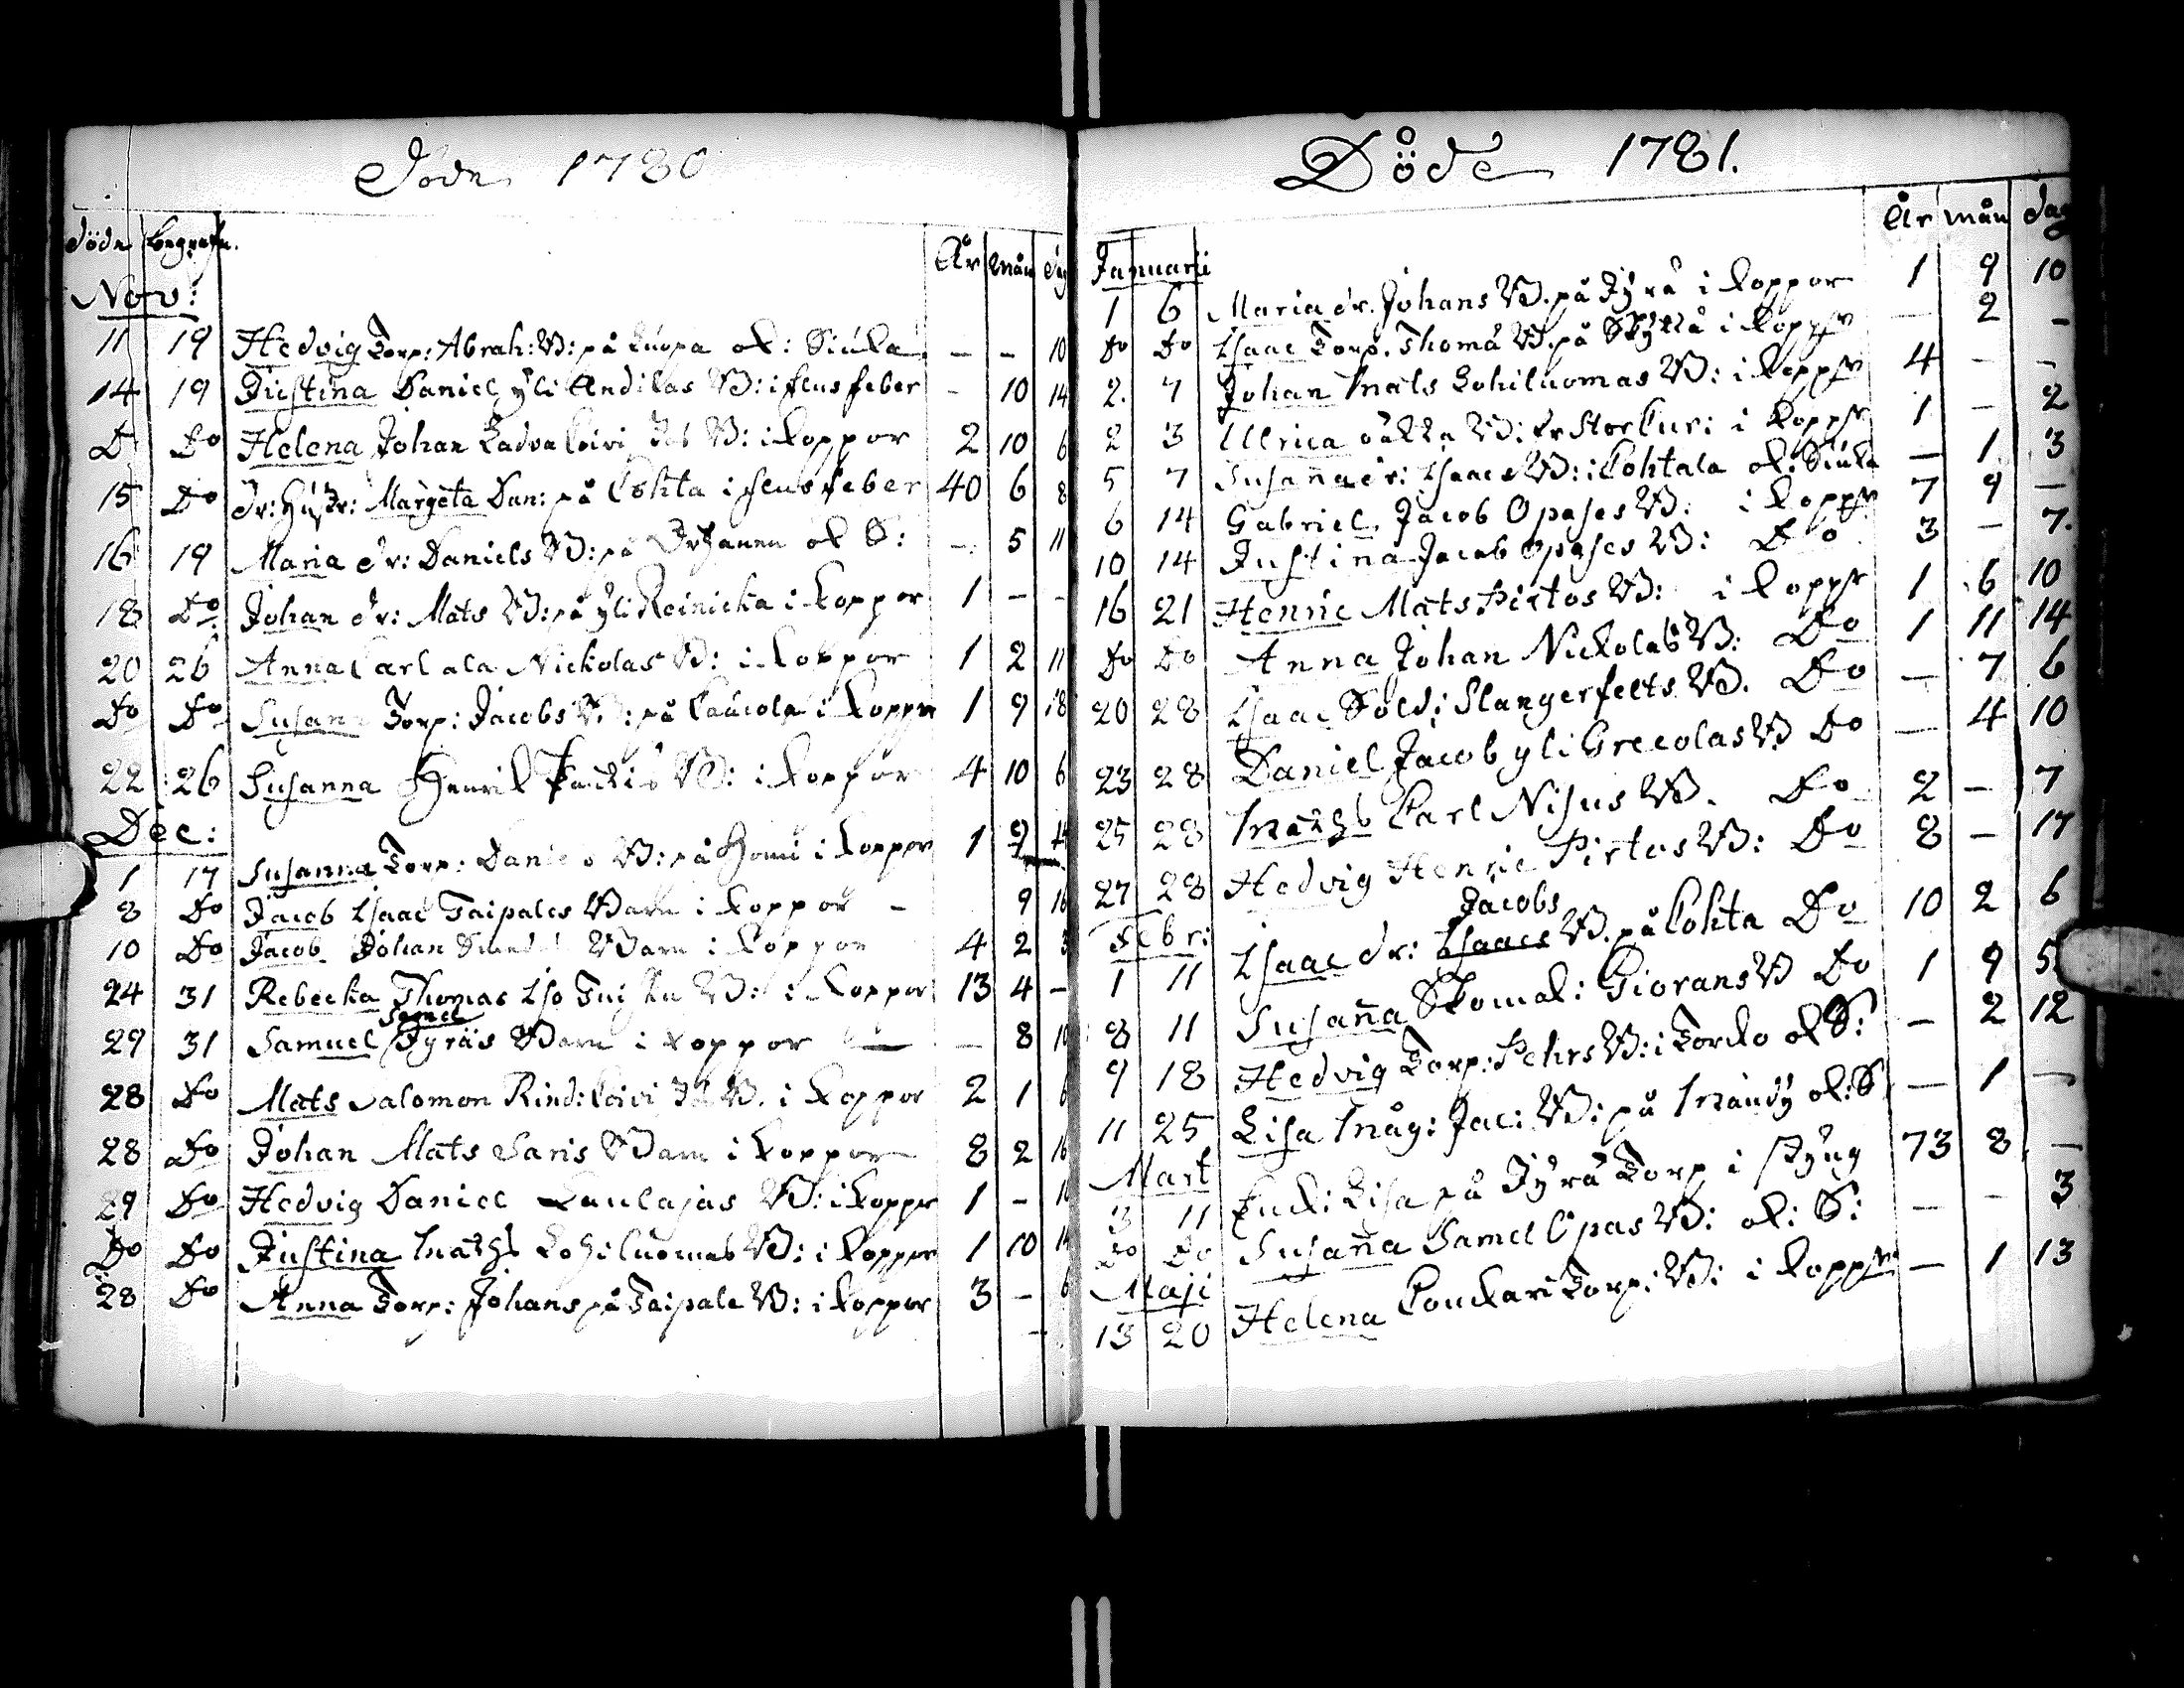 Döde 1780
döde begrafn. År mån dag
Nov:
11 19 Hedvig Torp: Abrah: B: på Luopa ok: Siuka - - 10
14 19 Justina Daniel yli Andilas B: i flusfeber - 10 14
D Do Helena Johan Ladvakoivi B: i koppor 2 10 6
15 Do dr: Hustr: Margeta Dan: på Pohta i flusfeber 40 6 8
16 19 Maria dr: Daniels B: på ok S: - 5 11
18 Do Johan dr: Mats B: på yli Reinicka i koppor 1 - -
20 26 Anna Carl ala Nickolas B: i koppor 1 2 11
Do Do Susan Torp: Jacobs B: på Caucola i koppor 1 9 18
22 26 Susanna Henrik B: i koppor 4 10 6
Dec:
1 17 Susanna Torp: Daniels B: på i koppor 1 9 14
8 Do Jacob Isaac Taipales Barn i koppor - 9 16
10 Do Jacob Johan Barn i koppor 4 2 3
24 31 Rebecka Thomas Iso B: i koppor 13 4 -
29 31 Samuel Samel Jyräs Barn i koppor - 8 10
28 Do Mats Salomon Rind:koivi B. i koppor 2 1 6
28 Do Johan Mats Saris Barn i koppor 8 2 16
29 Do Hedvig Daniel Laulajas B: i koppr 1 - 10
Do Do Justina Maths Lohiluomas B: i koppor 1 10 14
28 Do Anna Torp: Johans på Taipale B: i koppor 3 - 6
Döde 1781.
År mån dag
Januarii
1 6 Maria dr. Johans B. på Jyrä i koppor 1 9 10
Do Do Isaac Torp. Thomä B. på Skyttä i koppr - 2 -
2. 7 Johan Mats Lohiluomas B: i koppr 4 - -
2 3 Ulrica B: fr Storkur: i koppr 1 - 2
5 7 Susana dr: Isaacs B: i Pohtala ok: Siuka - 1 3
6 14 Gabriel Jacob Opases B: i koppr 7 9 -
10 14 Justina Jacob Opases B: Do 3 - 7.
16 21 Henric Mats Pirtos B: i koppr 1 6 10
Do Do Anna Johan Nickolas B: Do 1 11 14
20 28 Isaac Sold: Slangerfelts B. Do - 7 6
23 28 Daniel Jacob yli Grecolas B Do - 4 10
25 28 Maths Carl Nisus B. Do 2 - 7
27 28 Hedvig Henric Pirtos B: Do 8 - 17
Febr:
Jacobs
1 11 Isaac dr: Isaacs B. på Pohta Do 10 2 6
8 11 Susaña Skomak: Giorans B Do 1 9 5.
9 18 Hedvig Torp: Pehrs B: i Torcko ok S: - 2 12
11 25 Lisa Måg: Jac: B: på Mandy ok: S - 1 -
Mart
3 11 Enk: Lisa på Jyrä Torp i styng 73 8 -
Do Do Susaña Samel Opas B: ok: S: - - 3
Maji
13 20 Helena Pouckari Torp: B: i koppr - 1 13